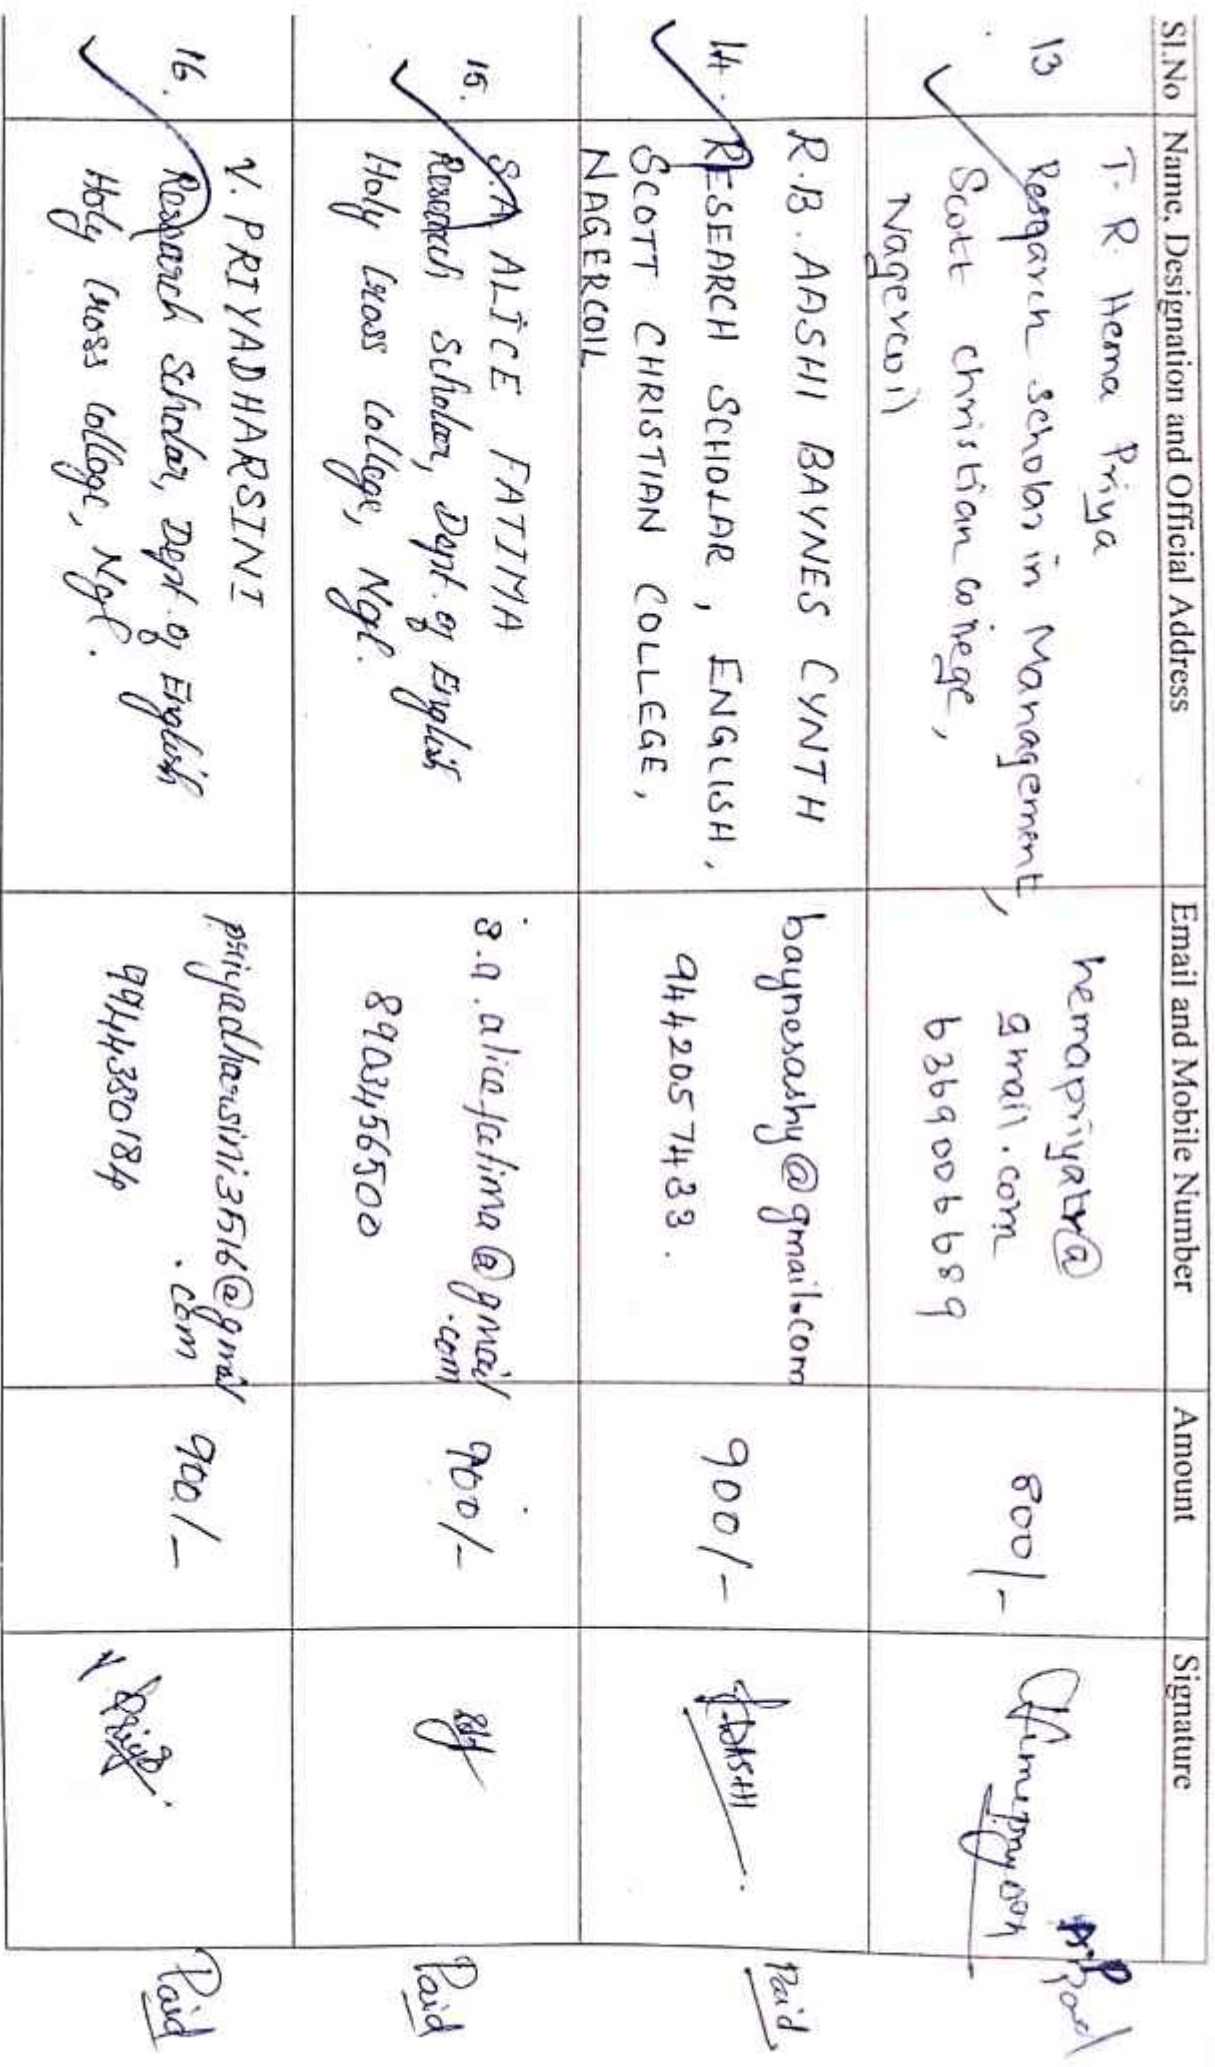 Sl.No Name, Designation and Official Address Email and Mobile Number Amount Signature
13 T. R. Hema Priya
Research scholar in Management,
Scott christian college,
Nagercoil
hemapriyatr@
gmail.com
6369006689
800/-
Paid
14. R.B. AASHI BAYNES CYNTH
RESEARCH SCHOLAR, ENGLISH,
SCOTT CHRISTIAN COLLEGE,
NAGERCOIL
baynesashy@gmail.com
9442057433.
900/-
Paid
15. S.A ALICE FATIMA
Research Scholar, Dept. of English
Holy Cross College, Ngl.
s.a.alicefatima@gmail
.com
8903456500
900/-
Paid
16. V. PRIYADHARSINI
Research Scholar, Dept. of English
Holy Cross College, Ngl.
priyadharsini3516@gmail
.com
9944380184
900/-
Paid